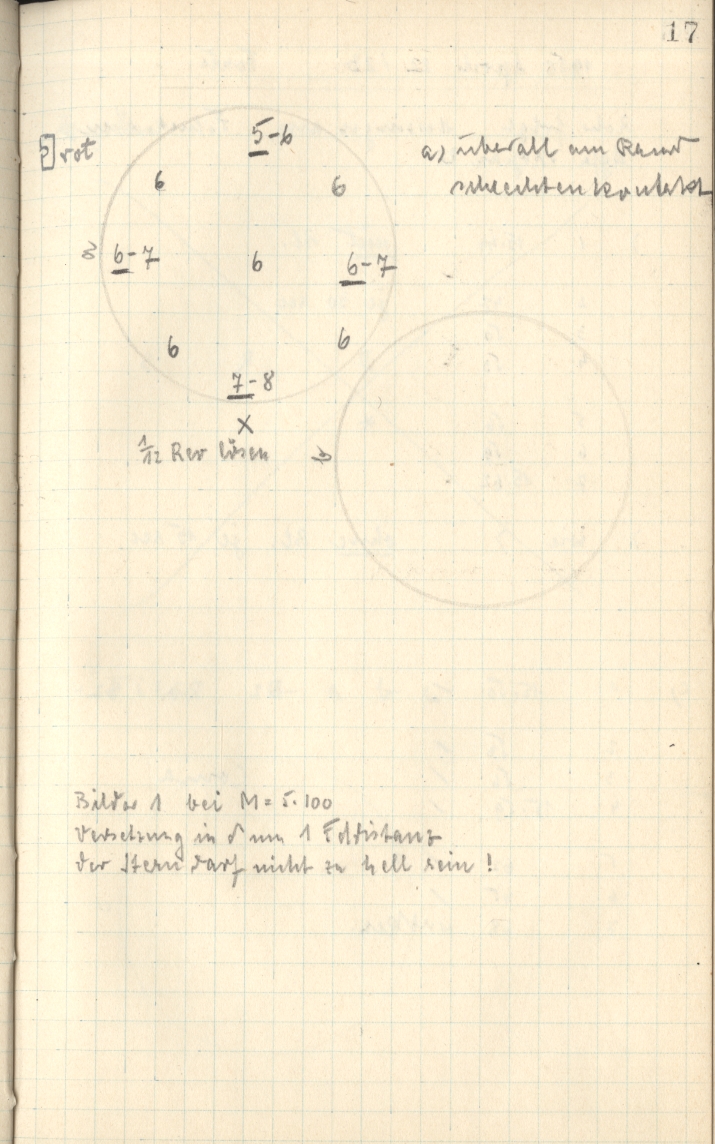 17
5 rot
5-6
a) überall am Rand
schlechten Kontakt
6 6
6-7 6 6-7
6 6
7-8
X
1/12 Rev lösen
Bilder 1 bei M = 5.100
Versetzung in δ um 1 Feldistanz
der Stern darf nicht zu hell sein!